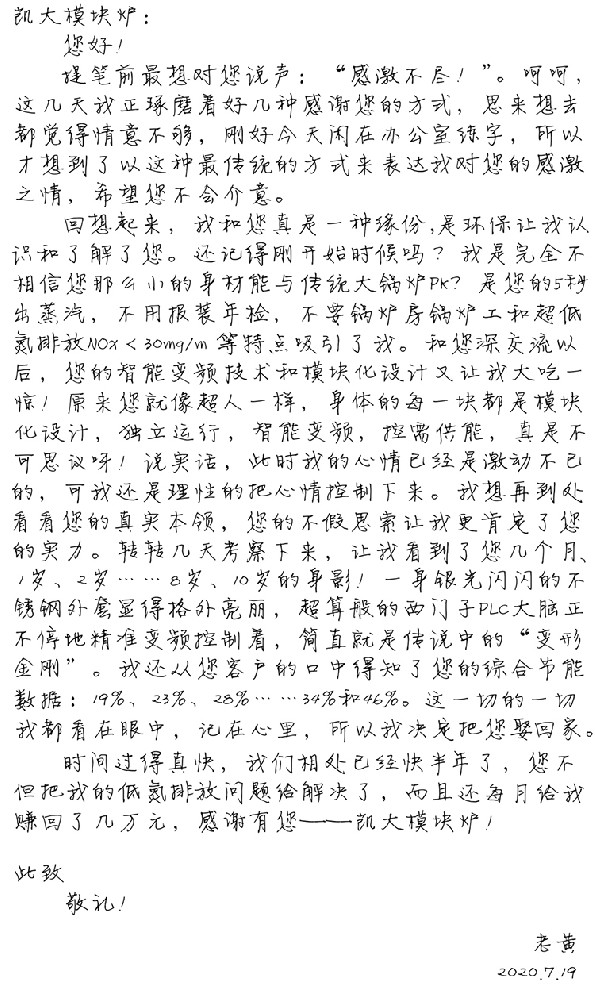 凯大模块炉：
您好！
提笔前最想对您说声：“感激不尽！”。呵呵，
这几天我正琢磨着好几种感谢您的方式，思来想去
都觉得情意不够，刚好今天闲在办公室练字，所以
才想到了以这种最传统的方式来表达我对您的感激
之情，希望您不会介意。
回想起来，我和您真是一种缘份，是环保让我认
识和了解了您。还记得刚开始时候吗？我是完全不
相信您那么小的身材能与传统大锅炉PK？是您的5秒
出蒸汽，不用报装年检，不要锅炉房锅炉工和超低
氮排放NOx<30mg/m等特点吸引了我。和您深交流以
后，您的智能变频技术和模块化设计又让我大吃一
惊！原来您就像超人一样，身体的每一块都是模块
化设计，独立运行，智能变频，按需供能，真是不
可思议呀！说实话，此时我的心情已经是激动不已
的，可我还是理性的把心情控制下来。我想再到处
看看您的真实本领，您的不假思索让我更肯定了您
的实力。转转几天考察下来，让我看到了您几个月、
1岁、2岁……8岁、10岁的身影！一身银光闪闪的不
锈钢外套显得格外亮丽，超算般的西门子PLC大脑正
不停地精准变频控制着，简直就是传说中的“变形
金刚”。我还从您客户的口中得知了您的综合节能
数据：19%、23%、28%……34%和46%。这一切的一切
我都看在眼中，记在心里，所以我决定把您娶回家。
时间过得真快，我们相处已经快半年了，您不
但把我的低氮排放问题给解决了，而且还每月给我
赚回了几万元，感谢有您——凯大模块炉！
此致
敬礼！
老黄
2020.7.19